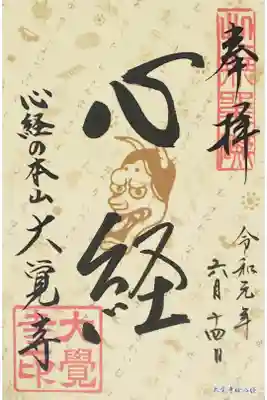 奉拝
令和元年
六月十四日
心経
心経の本山 大覚寺
大覺
寺印